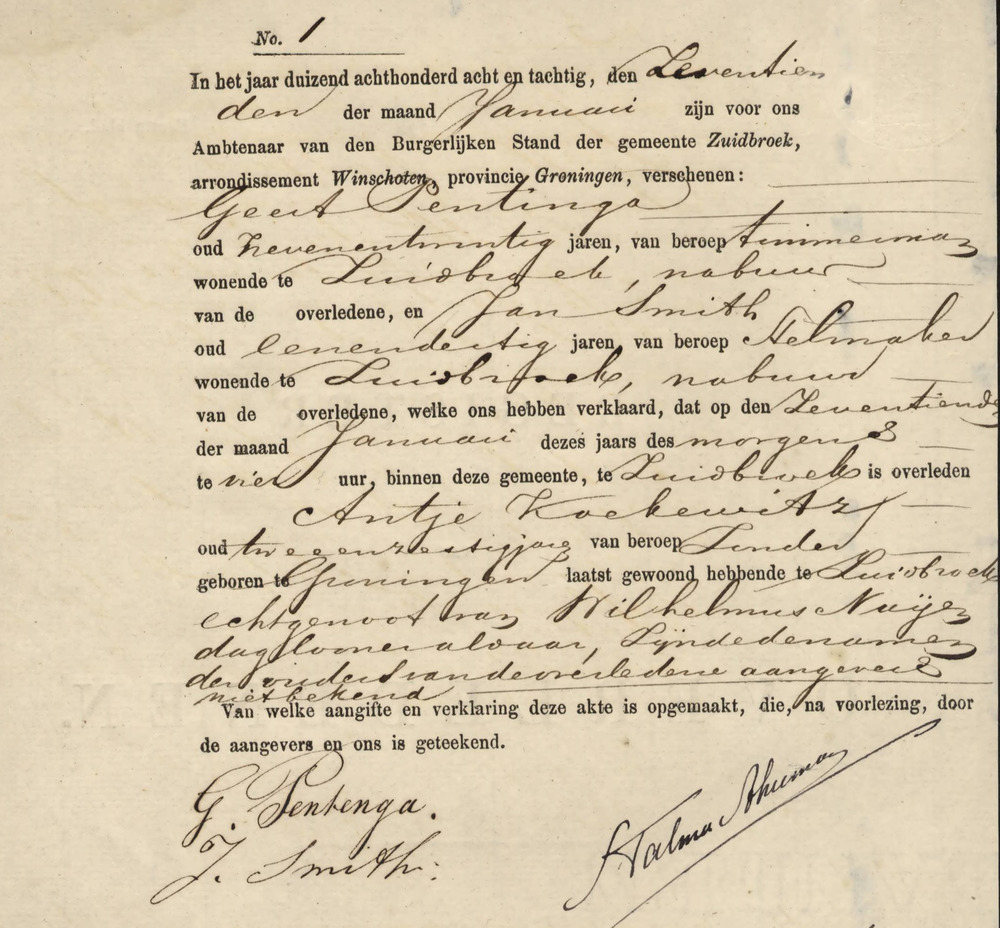 No. 1
In het jaar duizend achthonderd acht en tachtig, den Zeventien
den der maand Januari zijn voor ons
Ambtenaar van den Burgerlijken Stand der gemeente Zuidbroek,
arrondissement Winschoten, provincie Groningen, verschenen:
Geert Pentinga
oud zevenentwintig jaren, van beroep timmerman
wonende te Zuidbroek, nabuur
van de overledene, en Jan Smith
oud eenendertig jaren, van beroep stelmaker
wonende te Zuidbroek, nabuur
van de overledene, welke ons hebben verklaard, dat op den Zeventienden
der maand Januari dezes jaars des morgens
te vier uur, binnen deze gemeente, te Zuidbroek is overleden
Antje Koekewitz
oud tweeenzestigjare van beroep Zonder
geboren te Groningen laatst gewoond hebbende te Zuidbroek
echtgenoot van Wilhelmus Nuijen
daglooner aldaar, Zijnde de namen
der ouders van de overledene aangevers
niet bekend
Van welke aangifte en verklaring deze akte is opgemaakt, die, na voorlezing, door
de aangevers en ons is geteekend.
G. Pentenga.
J. Smith.
Talma Stheeman